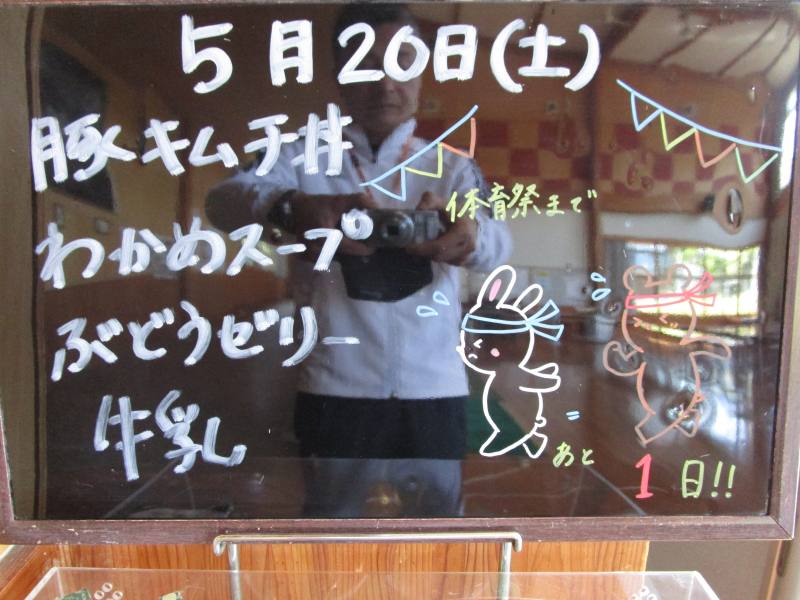 5月20日(土)
豚キムチ丼
わかめスープ
ぶどうゼリー
牛乳
体育祭まで
あと1日!!